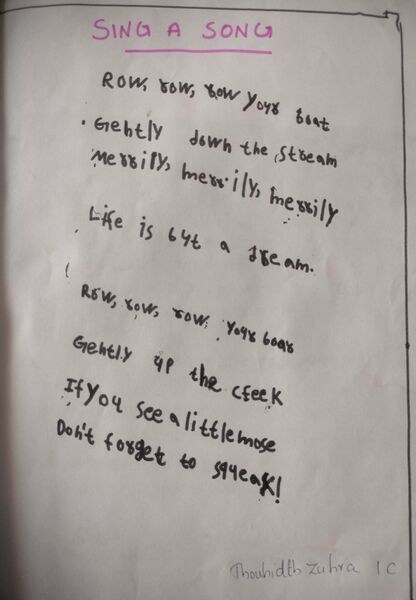 SING A SONG
Row, row, row your boat
Gently down the stream
Merrily, merrily, merrily
Life is but a dream.
Row, row, row your boar
Gently up the creek
If you see a little mose
Don't forget to squeak!
Thouhidth Zuhra 1 C